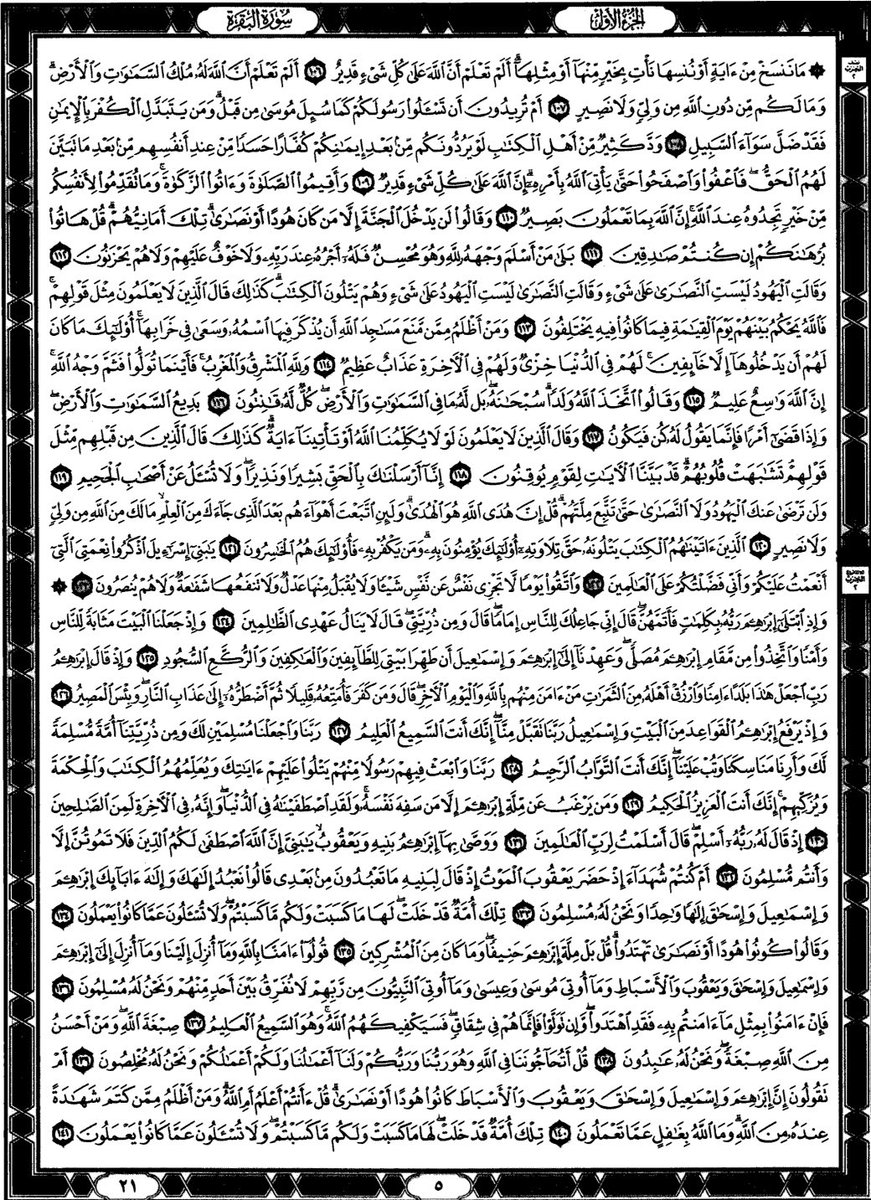 الجُزْءُ الأَوَّل
سُورَةُ البَقَرَة
۞ مَا نَنسَخْ مِنْ ءَايَةٍ أَوْ نُنسِهَا نَأْتِ بِخَيْرٍ مِّنْهَآ أَوْ مِثْلِهَآ أَلَمْ تَعْلَمْ أَنَّ ٱللَّهَ عَلَىٰ كُلِّ شَىْءٍ قَدِيرٌ ١٠٦ أَلَمْ تَعْلَمْ أَنَّ ٱللَّهَ لَهُۥ مُلْكُ ٱلسَّمَٰوَٰتِ وَٱلْأَرْضِ ۗ
وَمَا لَكُم مِّن دُونِ ٱللَّهِ مِن وَلِىٍّ وَلَا نَصِيرٍ ١٠٧ أَمْ تُرِيدُونَ أَن تَسْـَٔلُوا۟ رَسُولَكُمْ كَمَا سُئِلَ مُوسَىٰ مِن قَبْلُ ۗ وَمَن يَتَبَدَّلِ ٱلْكُفْرَ بِٱلْإِيمَٰنِ
فَقَدْ ضَلَّ سَوَآءَ ٱلسَّبِيلِ ١٠٨ وَدَّ كَثِيرٌ مِّنْ أَهْلِ ٱلْكِتَٰبِ لَوْ يَرُدُّونَكُم مِّنۢ بَعْدِ إِيمَٰنِكُمْ كُفَّارًا حَسَدًا مِّنْ عِندِ أَنفُسِهِم مِّنۢ بَعْدِ مَا تَبَيَّنَ
لَهُمُ ٱلْحَقُّ ۖ فَٱعْفُوا۟ وَٱصْفَحُوا۟ حَتَّىٰ يَأْتِىَ ٱللَّهُ بِأَمْرِهِۦٓ ۗ إِنَّ ٱللَّهَ عَلَىٰ كُلِّ شَىْءٍ قَدِيرٌ ١٠٩ وَأَقِيمُوا۟ ٱلصَّلَوٰةَ وَءَاتُوا۟ ٱلزَّكَوٰةَ ۚ وَمَا تُقَدِّمُوا۟ لِأَنفُسِكُم
مِّنْ خَيْرٍ تَجِدُوهُ عِندَ ٱللَّهِ ۗ إِنَّ ٱللَّهَ بِمَا تَعْمَلُونَ بَصِيرٌ ١١٠ وَقَالُوا۟ لَن يَدْخُلَ ٱلْجَنَّةَ إِلَّا مَن كَانَ هُودًا أَوْ نَصَٰرَىٰ ۗ تِلْكَ أَمَانِيُّهُمْ ۗ قُلْ هَاتُوا۟
بُرْهَٰنَكُمْ إِن كُنتُمْ صَٰدِقِينَ ١١١ بَلَىٰ مَنْ أَسْلَمَ وَجْهَهُۥ لِلَّهِ وَهُوَ مُحْسِنٌ فَلَهُۥٓ أَجْرُهُۥ عِندَ رَبِّهِۦ وَلَا خَوْفٌ عَلَيْهِمْ وَلَا هُمْ يَحْزَنُونَ ١١٢
وَقَالَتِ ٱلْيَهُودُ لَيْسَتِ ٱلنَّصَٰرَىٰ عَلَىٰ شَىْءٍ وَقَالَتِ ٱلنَّصَٰرَىٰ لَيْسَتِ ٱلْيَهُودُ عَلَىٰ شَىْءٍ وَهُمْ يَتْلُونَ ٱلْكِتَٰبَ ۗ كَذَٰلِكَ قَالَ ٱلَّذِينَ لَا يَعْلَمُونَ مِثْلَ قَوْلِهِمْ ۚ
فَٱللَّهُ يَحْكُمُ بَيْنَهُمْ يَوْمَ ٱلْقِيَٰمَةِ فِيمَا كَانُوا۟ فِيهِ يَخْتَلِفُونَ ١١٣ وَمَنْ أَظْلَمُ مِمَّن مَّنَعَ مَسَٰجِدَ ٱللَّهِ أَن يُذْكَرَ فِيهَا ٱسْمُهُۥ وَسَعَىٰ فِى خَرَابِهَآ ۚ أُو۟لَٰٓئِكَ مَا كَانَ
لَهُمْ أَن يَدْخُلُوهَآ إِلَّا خَآئِفِينَ ۚ لَهُمْ فِى ٱلدُّنْيَا خِزْىٌ وَلَهُمْ فِى ٱلْءَاخِرَةِ عَذَابٌ عَظِيمٌ ١١٤ وَلِلَّهِ ٱلْمَشْرِقُ وَٱلْمَغْرِبُ ۚ فَأَيْنَمَا تُوَلُّوا۟ فَثَمَّ وَجْهُ ٱللَّهِ ۚ
إِنَّ ٱللَّهَ وَٰسِعٌ عَلِيمٌ ١١٥ وَقَالُوا۟ ٱتَّخَذَ ٱللَّهُ وَلَدًا ۗ سُبْحَٰنَهُۥ ۖ بَل لَّهُۥ مَا فِى ٱلسَّمَٰوَٰتِ وَٱلْأَرْضِ ۖ كُلٌّ لَّهُۥ قَٰنِتُونَ ١١٦ بَدِيعُ ٱلسَّمَٰوَٰتِ وَٱلْأَرْضِ ۖ
وَإِذَا قَضَىٰٓ أَمْرًا فَإِنَّمَا يَقُولُ لَهُۥ كُن فَيَكُونُ ١١٧ وَقَالَ ٱلَّذِينَ لَا يَعْلَمُونَ لَوْلَا يُكَلِّمُنَا ٱللَّهُ أَوْ تَأْتِينَآ ءَايَةٌ ۗ كَذَٰلِكَ قَالَ ٱلَّذِينَ مِن قَبْلِهِم مِّثْلَ
قَوْلِهِمْ ۘ تَشَٰبَهَتْ قُلُوبُهُمْ ۗ قَدْ بَيَّنَّا ٱلْءَايَٰتِ لِقَوْمٍ يُوقِنُونَ ١١٨ إِنَّآ أَرْسَلْنَٰكَ بِٱلْحَقِّ بَشِيرًا وَنَذِيرًا ۖ وَلَا تُسْـَٔلُ عَنْ أَصْحَٰبِ ٱلْجَحِيمِ ١١٩
وَلَن تَرْضَىٰ عَنكَ ٱلْيَهُودُ وَلَا ٱلنَّصَٰرَىٰ حَتَّىٰ تَتَّبِعَ مِلَّتَهُمْ ۗ قُلْ إِنَّ هُدَى ٱللَّهِ هُوَ ٱلْهُدَىٰ ۗ وَلَئِنِ ٱتَّبَعْتَ أَهْوَآءَهُم بَعْدَ ٱلَّذِى جَآءَكَ مِنَ ٱلْعِلْمِ ۙ مَا لَكَ مِنَ ٱللَّهِ مِن وَلِىٍّ
وَلَا نَصِيرٍ ١٢٠ ٱلَّذِينَ ءَاتَيْنَٰهُمُ ٱلْكِتَٰبَ يَتْلُونَهُۥ حَقَّ تِلَاوَتِهِۦٓ أُو۟لَٰٓئِكَ يُؤْمِنُونَ بِهِۦ ۗ وَمَن يَكْفُرْ بِهِۦ فَأُو۟لَٰٓئِكَ هُمُ ٱلْخَٰسِرُونَ ١٢١ يَٰبَنِىٓ إِسْرَٰٓءِيلَ ٱذْكُرُوا۟ نِعْمَتِىَ ٱلَّتِىٓ
أَنْعَمْتُ عَلَيْكُمْ وَأَنِّى فَضَّلْتُكُمْ عَلَى ٱلْعَٰلَمِينَ ١٢٢ وَٱتَّقُوا۟ يَوْمًا لَّا تَجْزِى نَفْسٌ عَن نَّفْسٍ شَيْـًٔا وَلَا يُقْبَلُ مِنْهَا عَدْلٌ وَلَا تَنفَعُهَا شَفَٰعَةٌ وَلَا هُمْ يُنصَرُونَ ١٢٣ ۞
وَإِذِ ٱبْتَلَىٰٓ إِبْرَٰهِـۧمَ رَبُّهُۥ بِكَلِمَٰتٍ فَأَتَمَّهُنَّ ۖ قَالَ إِنِّى جَاعِلُكَ لِلنَّاسِ إِمَامًا ۖ قَالَ وَمِن ذُرِّيَّتِى ۖ قَالَ لَا يَنَالُ عَهْدِى ٱلظَّٰلِمِينَ ١٢٤ وَإِذْ جَعَلْنَا ٱلْبَيْتَ مَثَابَةً لِّلنَّاسِ
وَأَمْنًا وَٱتَّخِذُوا۟ مِن مَّقَامِ إِبْرَٰهِـۧمَ مُصَلًّى ۖ وَعَهِدْنَآ إِلَىٰٓ إِبْرَٰهِـۧمَ وَإِسْمَٰعِيلَ أَن طَهِّرَا بَيْتِىَ لِلطَّآئِفِينَ وَٱلْعَٰكِفِينَ وَٱلرُّكَّعِ ٱلسُّجُودِ ١٢٥ وَإِذْ قَالَ إِبْرَٰهِـۧمُ
رَبِّ ٱجْعَلْ هَٰذَا بَلَدًا ءَامِنًا وَٱرْزُقْ أَهْلَهُۥ مِنَ ٱلثَّمَرَٰتِ مَنْ ءَامَنَ مِنْهُم بِٱللَّهِ وَٱلْيَوْمِ ٱلْءَاخِرِ ۖ قَالَ وَمَن كَفَرَ فَأُمَتِّعُهُۥ قَلِيلًا ثُمَّ أَضْطَرُّهُۥٓ إِلَىٰ عَذَابِ ٱلنَّارِ ۖ وَبِئْسَ ٱلْمَصِيرُ ١٢٦
وَإِذْ يَرْفَعُ إِبْرَٰهِـۧمُ ٱلْقَوَاعِدَ مِنَ ٱلْبَيْتِ وَإِسْمَٰعِيلُ رَبَّنَا تَقَبَّلْ مِنَّآ ۖ إِنَّكَ أَنتَ ٱلسَّمِيعُ ٱلْعَلِيمُ ١٢٧ رَبَّنَا وَٱجْعَلْنَا مُسْلِمَيْنِ لَكَ وَمِن ذُرِّيَّتِنَآ أُمَّةً مُّسْلِمَةً
لَّكَ وَأَرِنَا مَنَاسِكَنَا وَتُبْ عَلَيْنَآ ۖ إِنَّكَ أَنتَ ٱلتَّوَّابُ ٱلرَّحِيمُ ١٢٨ رَبَّنَا وَٱبْعَثْ فِيهِمْ رَسُولًا مِّنْهُمْ يَتْلُوا۟ عَلَيْهِمْ ءَايَٰتِكَ وَيُعَلِّمُهُمُ ٱلْكِتَٰبَ وَٱلْحِكْمَةَ
وَيُزَكِّيهِمْ ۚ إِنَّكَ أَنتَ ٱلْعَزِيزُ ٱلْحَكِيمُ ١٢٩ وَمَن يَرْغَبُ عَن مِّلَّةِ إِبْرَٰهِـۧمَ إِلَّا مَن سَفِهَ نَفْسَهُۥ ۚ وَلَقَدِ ٱصْطَفَيْنَٰهُ فِى ٱلدُّنْيَا ۖ وَإِنَّهُۥ فِى ٱلْءَاخِرَةِ لَمِنَ ٱلصَّٰلِحِينَ
١٣٠ إِذْ قَالَ لَهُۥ رَبُّهُۥٓ أَسْلِمْ ۖ قَالَ أَسْلَمْتُ لِرَبِّ ٱلْعَٰلَمِينَ ١٣١ وَوَصَّىٰ بِهَآ إِبْرَٰهِـۧمُ بَنِيهِ وَيَعْقُوبُ يَٰبَنِىَّ إِنَّ ٱللَّهَ ٱصْطَفَىٰ لَكُمُ ٱلدِّينَ فَلَا تَمُوتُنَّ إِلَّا
وَأَنتُم مُّسْلِمُونَ ١٣٢ أَمْ كُنتُمْ شُهَدَآءَ إِذْ حَضَرَ يَعْقُوبَ ٱلْمَوْتُ إِذْ قَالَ لِبَنِيهِ مَا تَعْبُدُونَ مِنۢ بَعْدِى قَالُوا۟ نَعْبُدُ إِلَٰهَكَ وَإِلَٰهَ ءَابَآئِكَ إِبْرَٰهِـۧمَ
وَإِسْمَٰعِيلَ وَإِسْحَٰقَ إِلَٰهًا وَٰحِدًا وَنَحْنُ لَهُۥ مُسْلِمُونَ ١٣٣ تِلْكَ أُمَّةٌ قَدْ خَلَتْ ۖ لَهَا مَا كَسَبَتْ وَلَكُم مَّا كَسَبْتُمْ ۖ وَلَا تُسْـَٔلُونَ عَمَّا كَانُوا۟ يَعْمَلُونَ ١٣٤
وَقَالُوا۟ كُونُوا۟ هُودًا أَوْ نَصَٰرَىٰ تَهْتَدُوا۟ ۗ قُلْ بَلْ مِلَّةَ إِبْرَٰهِـۧمَ حَنِيفًا ۖ وَمَا كَانَ مِنَ ٱلْمُشْرِكِينَ ١٣٥ قُولُوٓا۟ ءَامَنَّا بِٱللَّهِ وَمَآ أُنزِلَ إِلَيْنَا وَمَآ أُنزِلَ إِلَىٰٓ إِبْرَٰهِـۧمَ
وَإِسْمَٰعِيلَ وَإِسْحَٰقَ وَيَعْقُوبَ وَٱلْأَسْبَاطِ وَمَآ أُوتِىَ مُوسَىٰ وَعِيسَىٰ وَمَآ أُوتِىَ ٱلنَّبِيُّونَ مِن رَّبِّهِمْ لَا نُفَرِّقُ بَيْنَ أَحَدٍ مِّنْهُمْ وَنَحْنُ لَهُۥ مُسْلِمُونَ ١٣٦
فَإِنْ ءَامَنُوا۟ بِمِثْلِ مَآ ءَامَنتُم بِهِۦ فَقَدِ ٱهْتَدَوا۟ ۖ وَّإِن تَوَلَّوْا۟ فَإِنَّمَا هُمْ فِى شِقَاقٍ ۖ فَسَيَكْفِيكَهُمُ ٱللَّهُ ۚ وَهُوَ ٱلسَّمِيعُ ٱلْعَلِيمُ ١٣٧ صِبْغَةَ ٱللَّهِ ۖ وَمَنْ أَحْسَنُ
مِنَ ٱللَّهِ صِبْغَةً ۖ وَنَحْنُ لَهُۥ عَٰبِدُونَ ١٣٨ قُلْ أَتُحَآجُّونَنَا فِى ٱللَّهِ وَهُوَ رَبُّنَا وَرَبُّكُمْ وَلَنَآ أَعْمَٰلُنَا وَلَكُمْ أَعْمَٰلُكُمْ وَنَحْنُ لَهُۥ مُخْلِصُونَ ١٣٩ أَمْ
تَقُولُونَ إِنَّ إِبْرَٰهِـۧمَ وَإِسْمَٰعِيلَ وَإِسْحَٰقَ وَيَعْقُوبَ وَٱلْأَسْبَاطَ كَانُوا۟ هُودًا أَوْ نَصَٰرَىٰ ۗ قُلْ ءَأَنتُمْ أَعْلَمُ أَمِ ٱللَّهُ ۗ وَمَنْ أَظْلَمُ مِمَّن كَتَمَ شَهَٰدَةً
عِندَهُۥ مِنَ ٱللَّهِ ۗ وَمَا ٱللَّهُ بِغَٰفِلٍ عَمَّا تَعْمَلُونَ ١٤٠ تِلْكَ أُمَّةٌ قَدْ خَلَتْ ۖ لَهَا مَا كَسَبَتْ وَلَكُم مَّا كَسَبْتُمْ ۖ وَلَا تُسْـَٔلُونَ عَمَّا كَانُوا۟ يَعْمَلُونَ ١٤١
٥
٢١